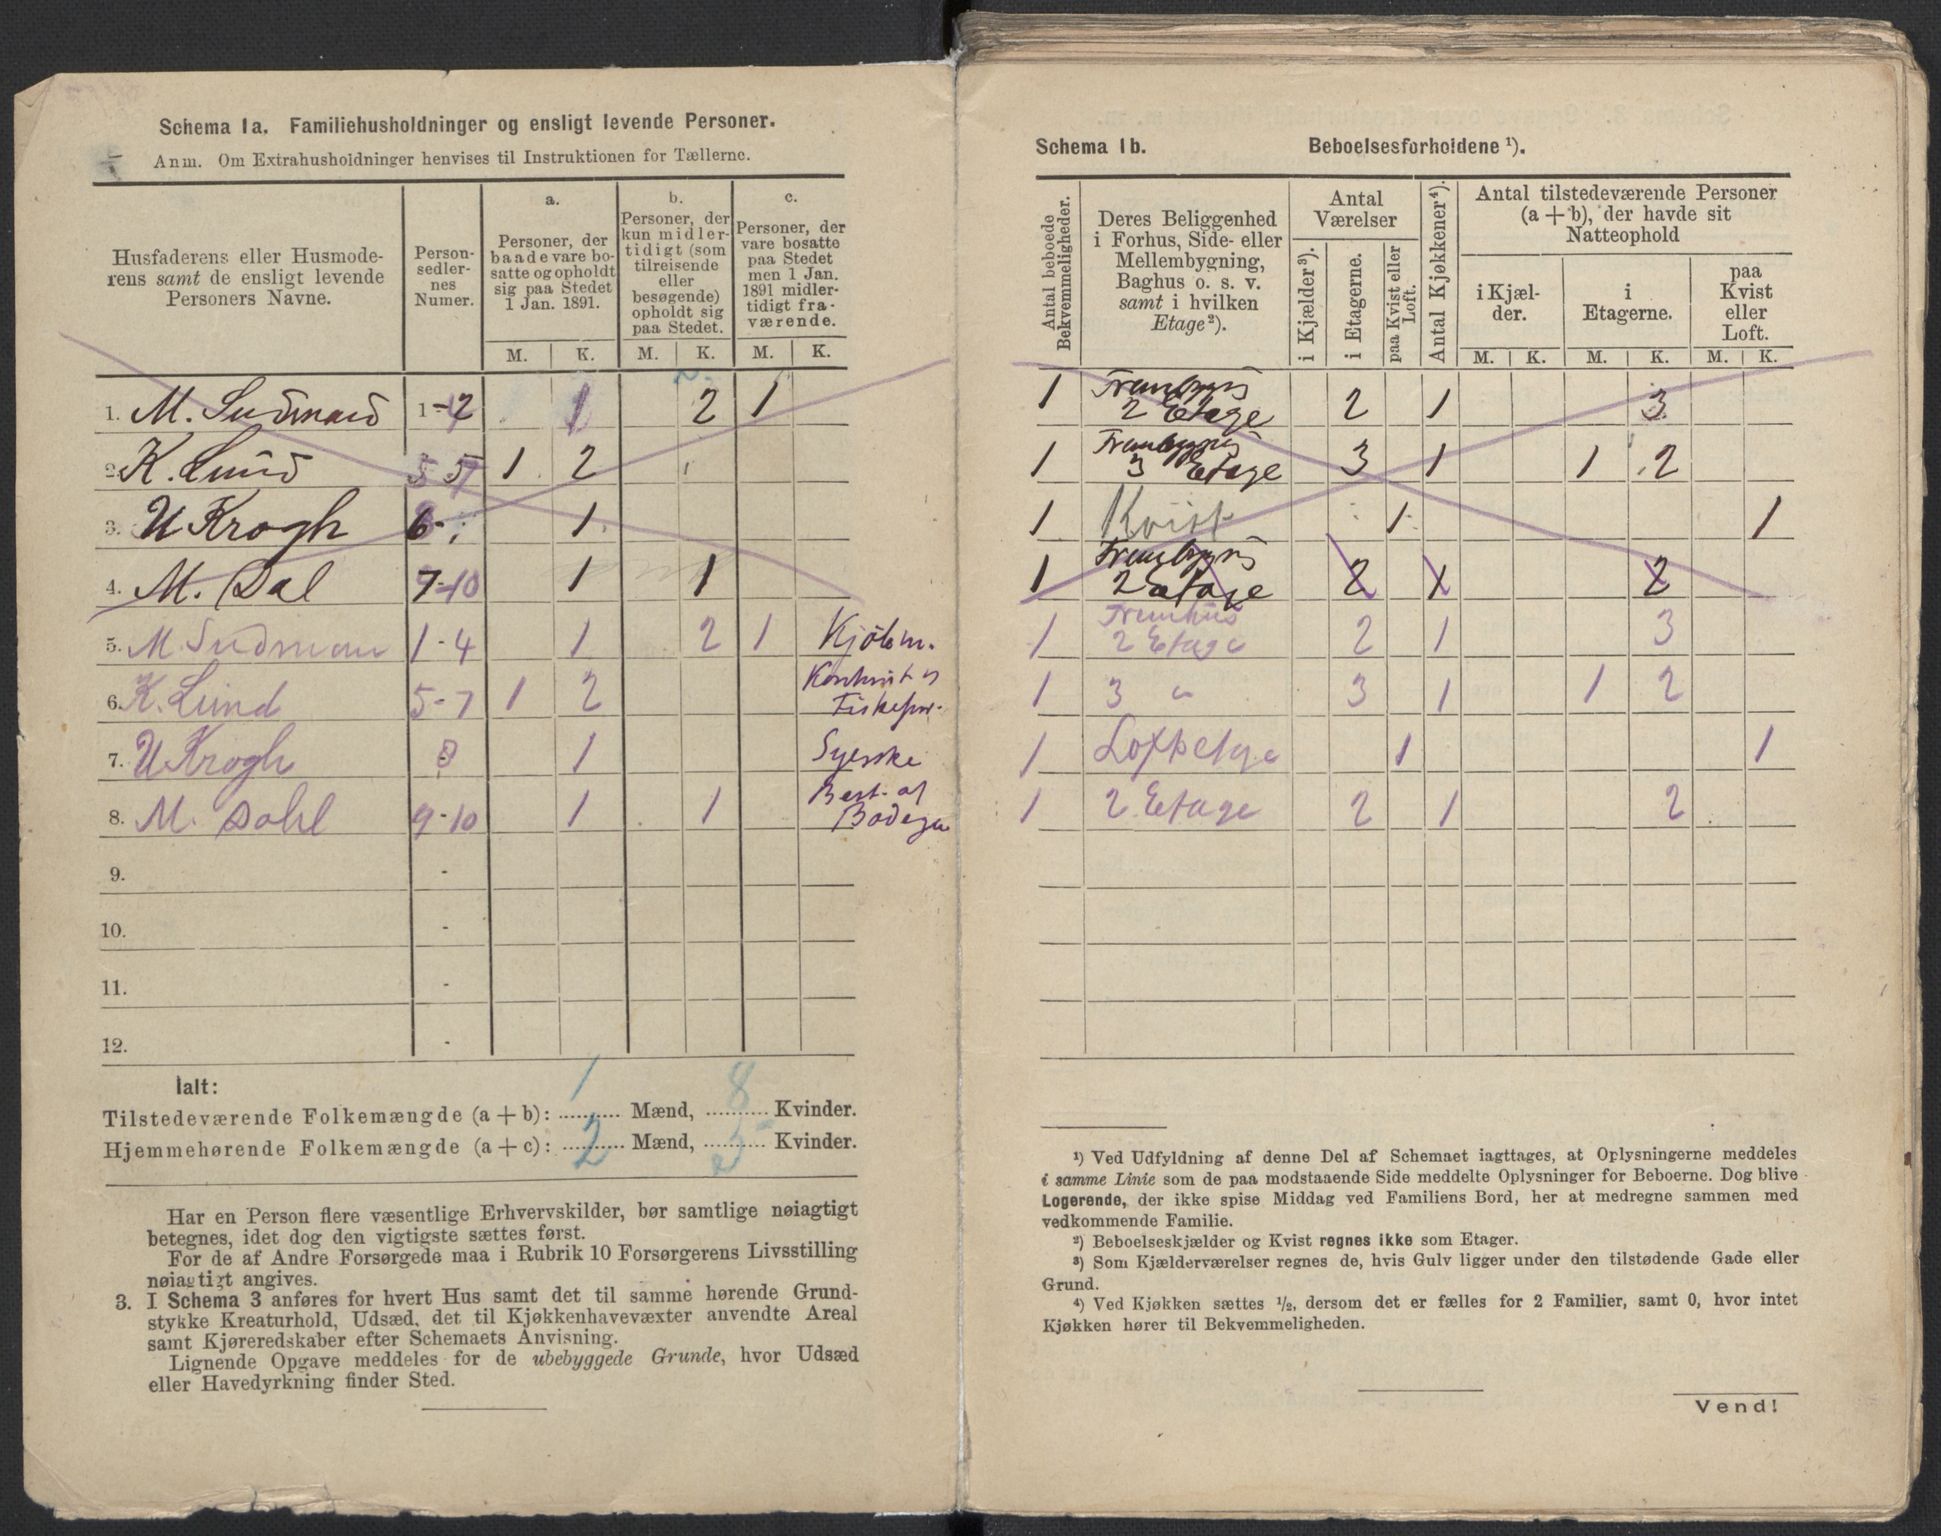 Schema 1a. Familiehusholdninger og ensligt levende Personer.
Anm. Om Extrahusholdninger henvises til Instruktionen for Tællerne.
Husfaderens eller Husmode-
rens samt de ensligt levende
Personers Navne.
Person-
sedler-
nes
Numer.
a.
Personer, der
baade vare bo-
satte og opholdt
sig paa Stedet
1 Jan. 1891.
b.
Personer, der
kun midler-
tidigt (som
tilreisende
eller
besøgende)
opholdt sig
paa Stedet.
c.
Personer, der
vare bosatte
paa Stedet
men 1 Jan.
1891 midler-
tidigt fra-
værende.
M. K. M. K. M. K.
1. M. Sudmand 1-2 1 2 1
2. K. Lund 5 1 2
3. U Krogh 6- 1
4. M. Dal 7-10 1 1
5. M. Sudman 1-4 1 2 1 Kjøbm.
6. K. Lund 5-7 1 2
7. U Krogh 8 1 Syerske
8. M. Dahl 9-10 1 1 Best. af
Bodega
9. -
10. -
11. -
12. -
Ialt:
Tilstedeværende Folkemængde (a + b): 1 Mænd, 8 Kvinder.
Hjemmehørende Folkemængde (a + c): 2 Mænd, 5 Kvinder.
Har en Person flere væsentlige Erhvervskilder, bør samtlige nøiagtigt
betegnes, idet dog den vigtigste sættes først.
For de af Andre Forsørgede maa i Rubrik 10 Forsørgerens Livsstilling
nøiagtigt angives.
3. I Schema 3 anføres for hvert Hus samt det til samme hørende Grund-
stykke Kreaturhold, Udsæd, det til Kjøkkenhavevæxter anvendte Areal
samt Kjøreredskaber efter Schemaets Anvisning.
Lignende Opgave meddeles for de ubebyggede Grunde, hvor Udsæd
eller Havedyrkning finder Sted.
Schema 1b. Beboelsesforholdene ¹).
Antal beboede
Bekvemmeligheder.
Deres Beliggenhed
i Forhus, Side- eller
Mellembygning,
Baghus o. s. v.
samt i hvilken
Etage²).
Antal
Værelser
i Kjælder³).
i Etagerne.
paa Kvist eller
Loft.
Antal Kjøkkener⁴).
Antal tilstedeværende Personer
(a + b), der havde sit
Natteophold
i Kjæl-
der.
i
Etagerne.
paa
Kvist
eller
Loft.
M. K. M. K. M. K.
1 Frembygn
2 Etage 2 1 3
1 Frembygn
3 Etage 3 1 1 2
1 Kvist 1 1
1 Frembygn
2 Etage 2 1 2
1 Fremhus
2 Etage 2 1 3
1 3 " 3 1 1 2
1 Loftsetage 1 1
1 2 Etage 2 1 2
¹) Ved Udfyldning af denne Del af Schemaet iagttages, at Oplysningerne meddeles
i samme Linie som de paa modstaaende Side meddelte Oplysninger for Beboerne. Dog blive
Logerende, der ikke spise Middag ved Familiens Bord, her at medregne sammen med
vedkommende Familie.
²) Beboelseskjælder og Kvist regnes ikke som Etager.
³) Som Kjælderværelser regnes de, hvis Gulv ligger under den tilstødende Gade eller
Grund.
⁴) Ved Kjøkken sættes ½, dersom det er fælles for 2 Familier, samt 0, hvor intet
Kjøkken hører til Bekvemmeligheden.
Vend!